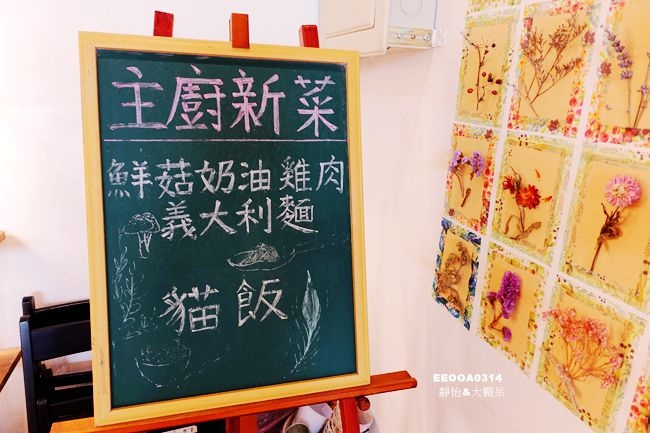 主廚新菜
鮮菇奶油雞肉
義大利麵
貓飯
EEOOA0314
靜怡&大顆呆